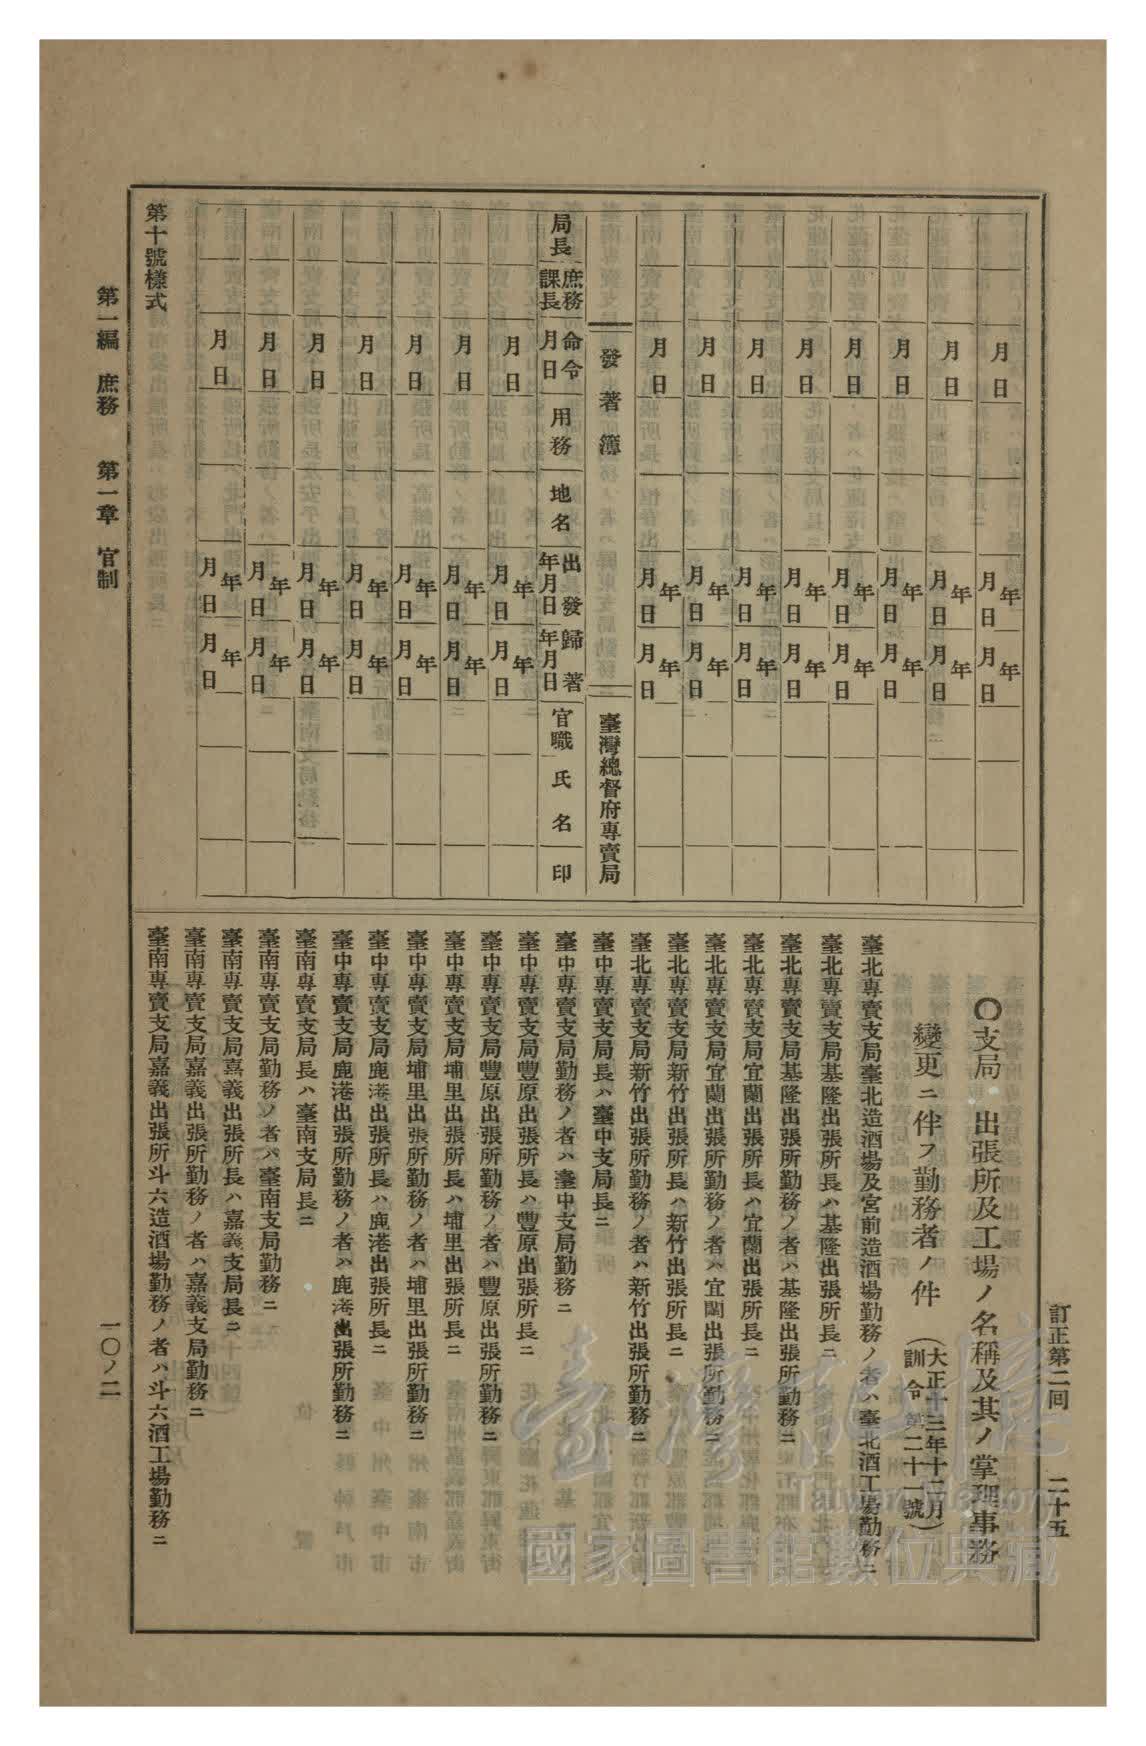 訂正第二回 二十五
月日 年月日 年月日
月日 年月日 年月日
月日 年月日 年月日
月日 年月日 年月日
月日 年月日 年月日
月日 年月日 年月日
月日 年月日 年月日
月日 年月日 年月日
發著簿 臺灣總督府專賣局
局長 庶務課長 命令月日 用務 地名 出發年月日 歸著年月日 官職氏名 印
月日 年月日 年月日
月日 年月日 年月日
月日 年月日 年月日
月日 年月日 年月日
月日 年月日 年月日
月日 年月日 年月日
月日 年月日 年月日
第十號樣式
〇支局 出張所及工場ノ名稱及其ノ掌理事務
變更ニ伴フ勤務者ノ件 (大正十三年十二月訓令第二十一號)
臺北專賣支局臺北造酒場及宮前造酒場勤務ノ者ハ臺北酒工場勤務ニ
臺北專賣支局基隆出張所長ハ基隆出張所長ニ
臺北專賣支局基隆出張所勤務ノ者ハ基隆出張所勤務ニ
臺北專賣支局宜蘭出張所長ハ宜蘭出張所長ニ
臺北專賣支局宜蘭出張所勤務ノ者ハ宜蘭出張所勤務ニ
臺北專賣支局新竹出張所長ハ新竹出張所長ニ
臺北專賣支局新竹出張所勤務ノ者ハ新竹出張所勤務ニ
臺中專賣支局長ハ臺中支局長ニ
臺中專賣支局勤務ノ者ハ臺中支局勤務ニ
臺中專賣支局豐原出張所長ハ豐原出張所長ニ
臺中專賣支局豐原出張所勤務ノ者ハ豐原出張所勤務ニ
臺中專賣支局埔里出張所長ハ埔里出張所長ニ
臺中專賣支局埔里出張所勤務ノ者ハ埔里出張所勤務ニ
臺中專賣支局鹿港出張所長ハ鹿港出張所長ニ
臺中專賣支局鹿港出張所勤務ノ者ハ鹿港出張所勤務ニ
臺南專賣支局長ハ臺南支局長ニ
臺南專賣支局勤務ノ者ハ臺南支局勤務ニ
臺南專賣支局嘉義出張所長ハ嘉義支局長ニ
臺南專賣支局嘉義出張所勤務ノ者ハ嘉義支局勤務ニ
臺南專賣支局嘉義出張所斗六造酒場勤務ノ者ハ斗六酒工場勤務ニ
第一編 庶務 第一章 官制 一〇ノ二
臺灣記憶
Taiwan Memory
國家圖書館數位典藏